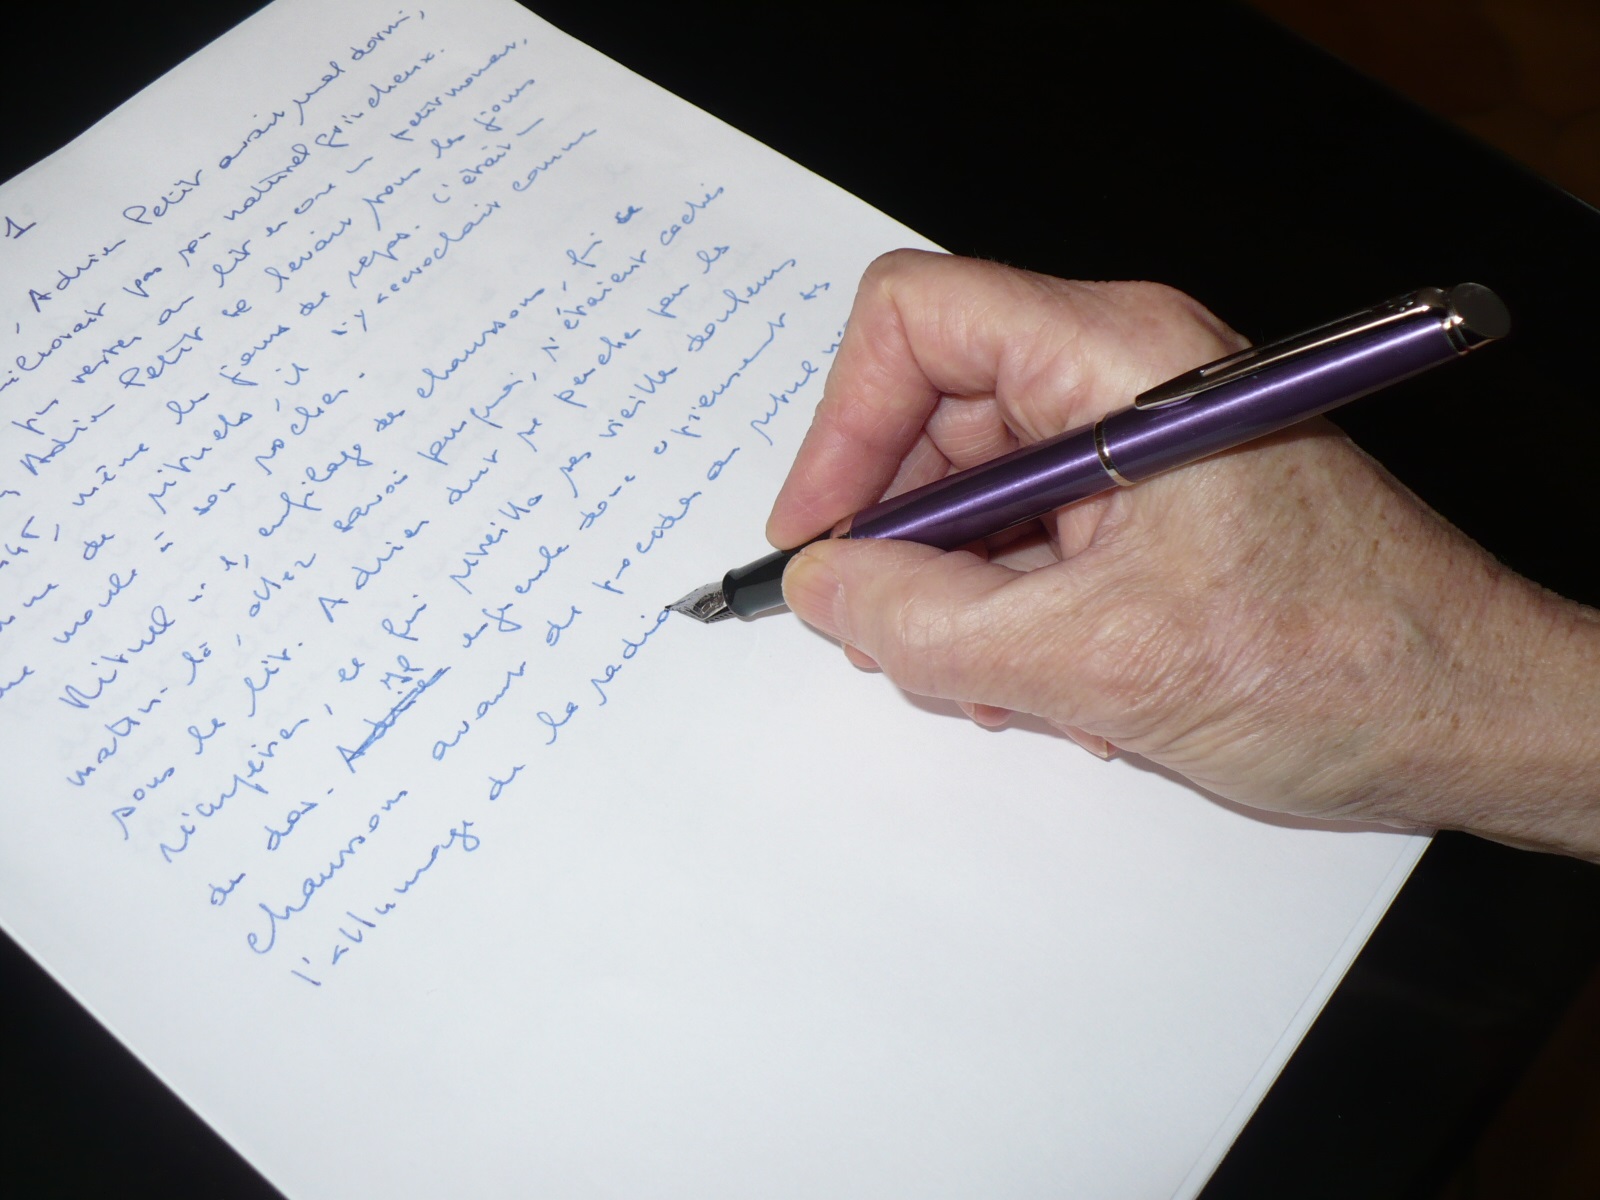 1
, Adrien Petit avait mal dormi,
pas son naturel grincheux.
rester au lit encore un petit moment,
Adrien Petit se levait tous les jours
, même les jours de repos. C'était un
de rituels, il s'y accrochait comme
une moule à son rocher.
Rituel n° 1, enfilage des chaussons, qui ce
matin-là, allez savoir pourquoi, s'étaient cachés
sous le lit. Adrien dut se pencher pour les
récupérer, ce qui réveilla ses vieilles douleurs
de dos. Adrien Il enfila donc ses
chaussons avant de procéder au rituel
l'allumage de la radio